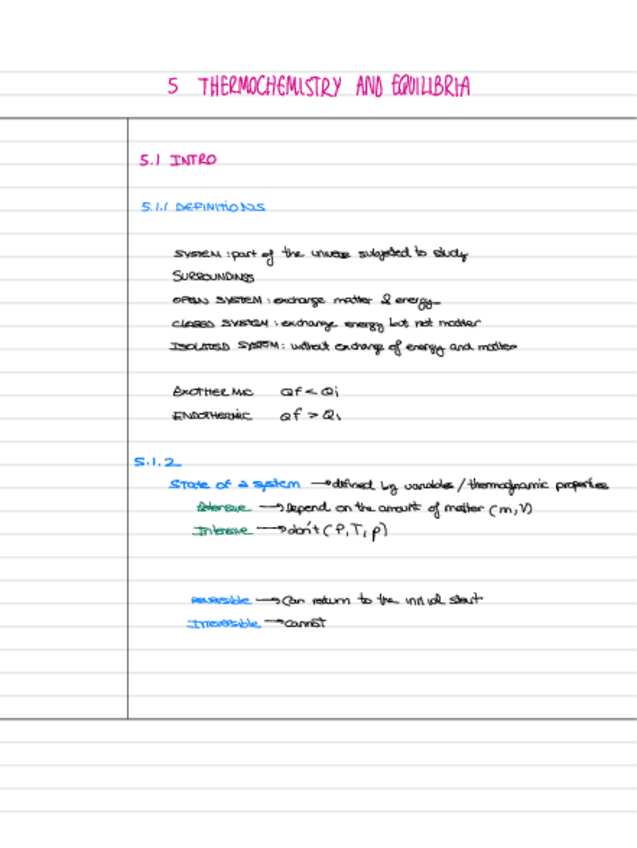 5 THERMOCHEMISTRY AND EQUILIBRIA
5.1 INTRO
5.1.1 DEFINITIONS
SYSTEM : part of the universe subjected to study
SURROUNDINGS
OPEN SYSTEM : exchange matter & energy
CLOSED SYSTEM : exchange energy but not matter
ISOLATED SYSTEM : without exchange of energy and matter
EXOTHERMIC Qf < Qi
ENDOTHERMIC Qf > Qi
5.1.2
State of a system → defined by variables / thermodynamic properties
Extensive → Depend on the amount of matter (m, V)
Intensive → don't (P, T, ρ)
Reversible → Can return to the initial start
Irreversible → cannot